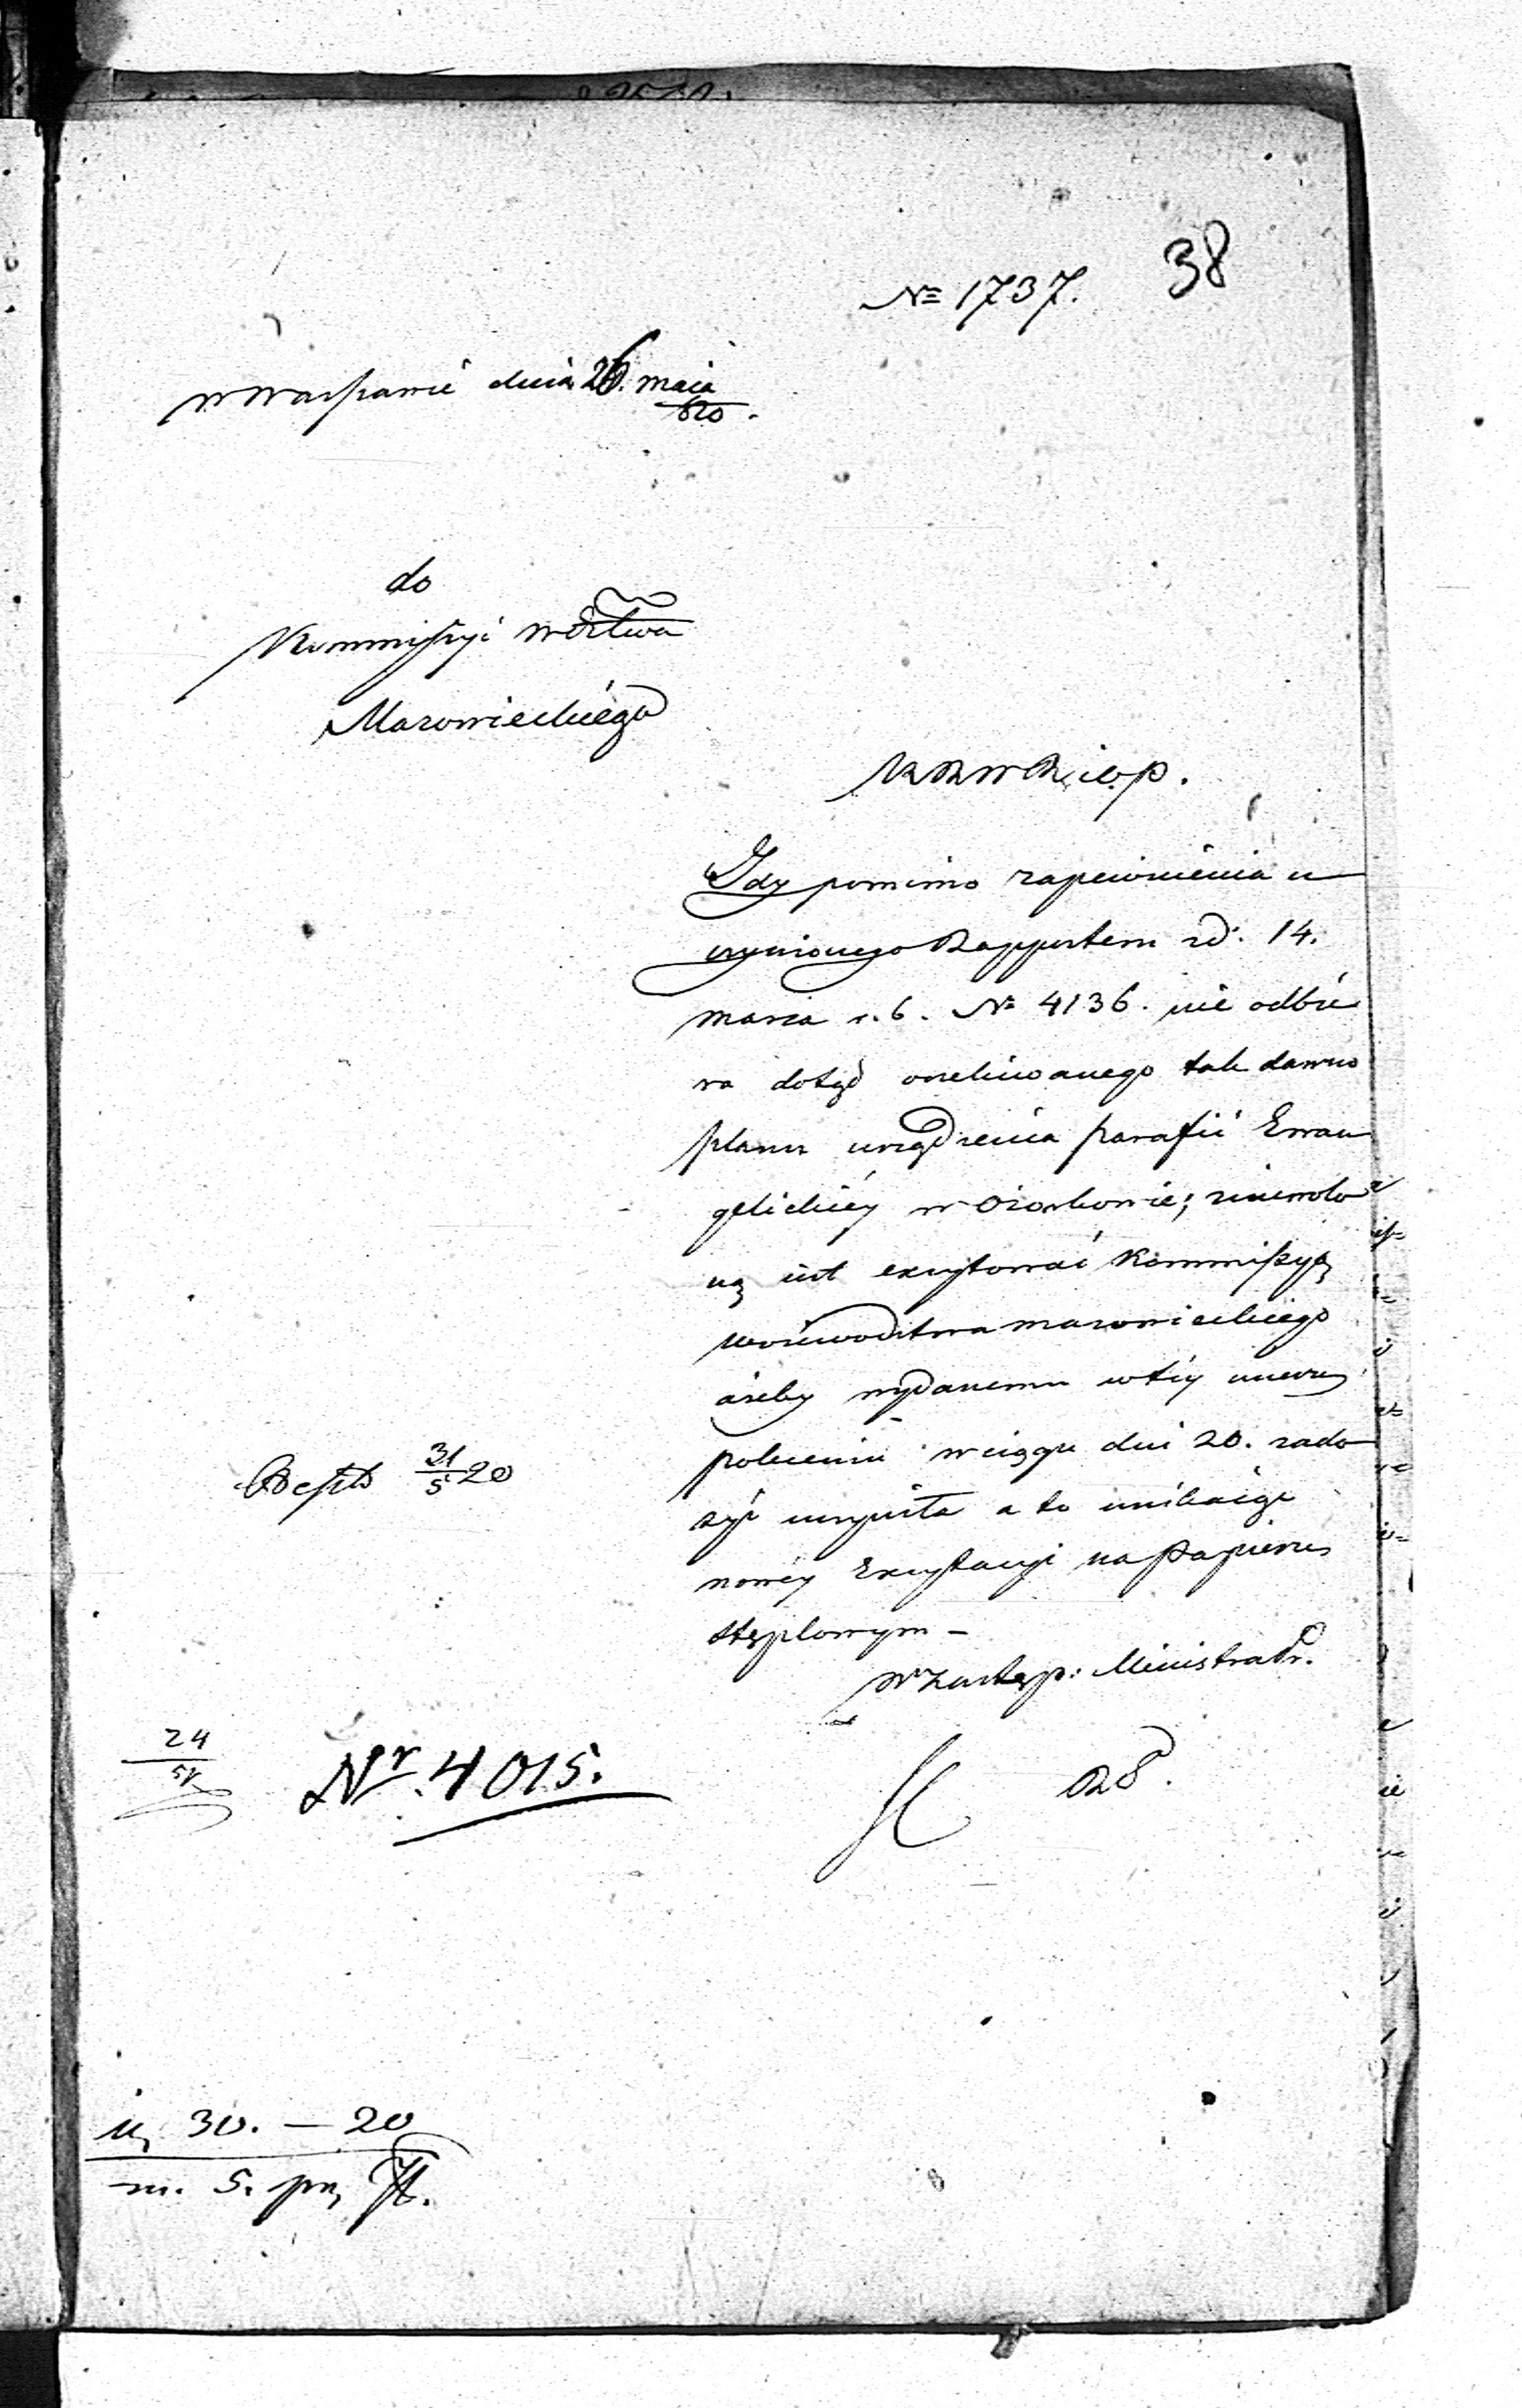 38
№ 1737.
w Warszawie dnia 26. maia
820.
do
Kommissyi Wdztwa
Mazowieckiego
K R W R i O. P.
Gdy pomimo zapewnienia u
czynionego Rapportem z d. 14.
marca r. b. № 4136. nie odbie
ra dotąd oczekiwanego tak dawno
planu urządzenia parafii Ewan
gelickiéy w Ozorkowie; zniewolo
ną iest excytować Kommissyą
Woiewodztwa mazowieckiego
ażeby wydanemu w téy mierze
poleceniu w ciągu dni 20. zado
syć uczyniła a to unikaiąc
nowéy Excytacyi na Papierze
stęplowym –
W Zastęp: Ministra
31/5 20
24
Nr. 4015.
30. — 20
m. 5.